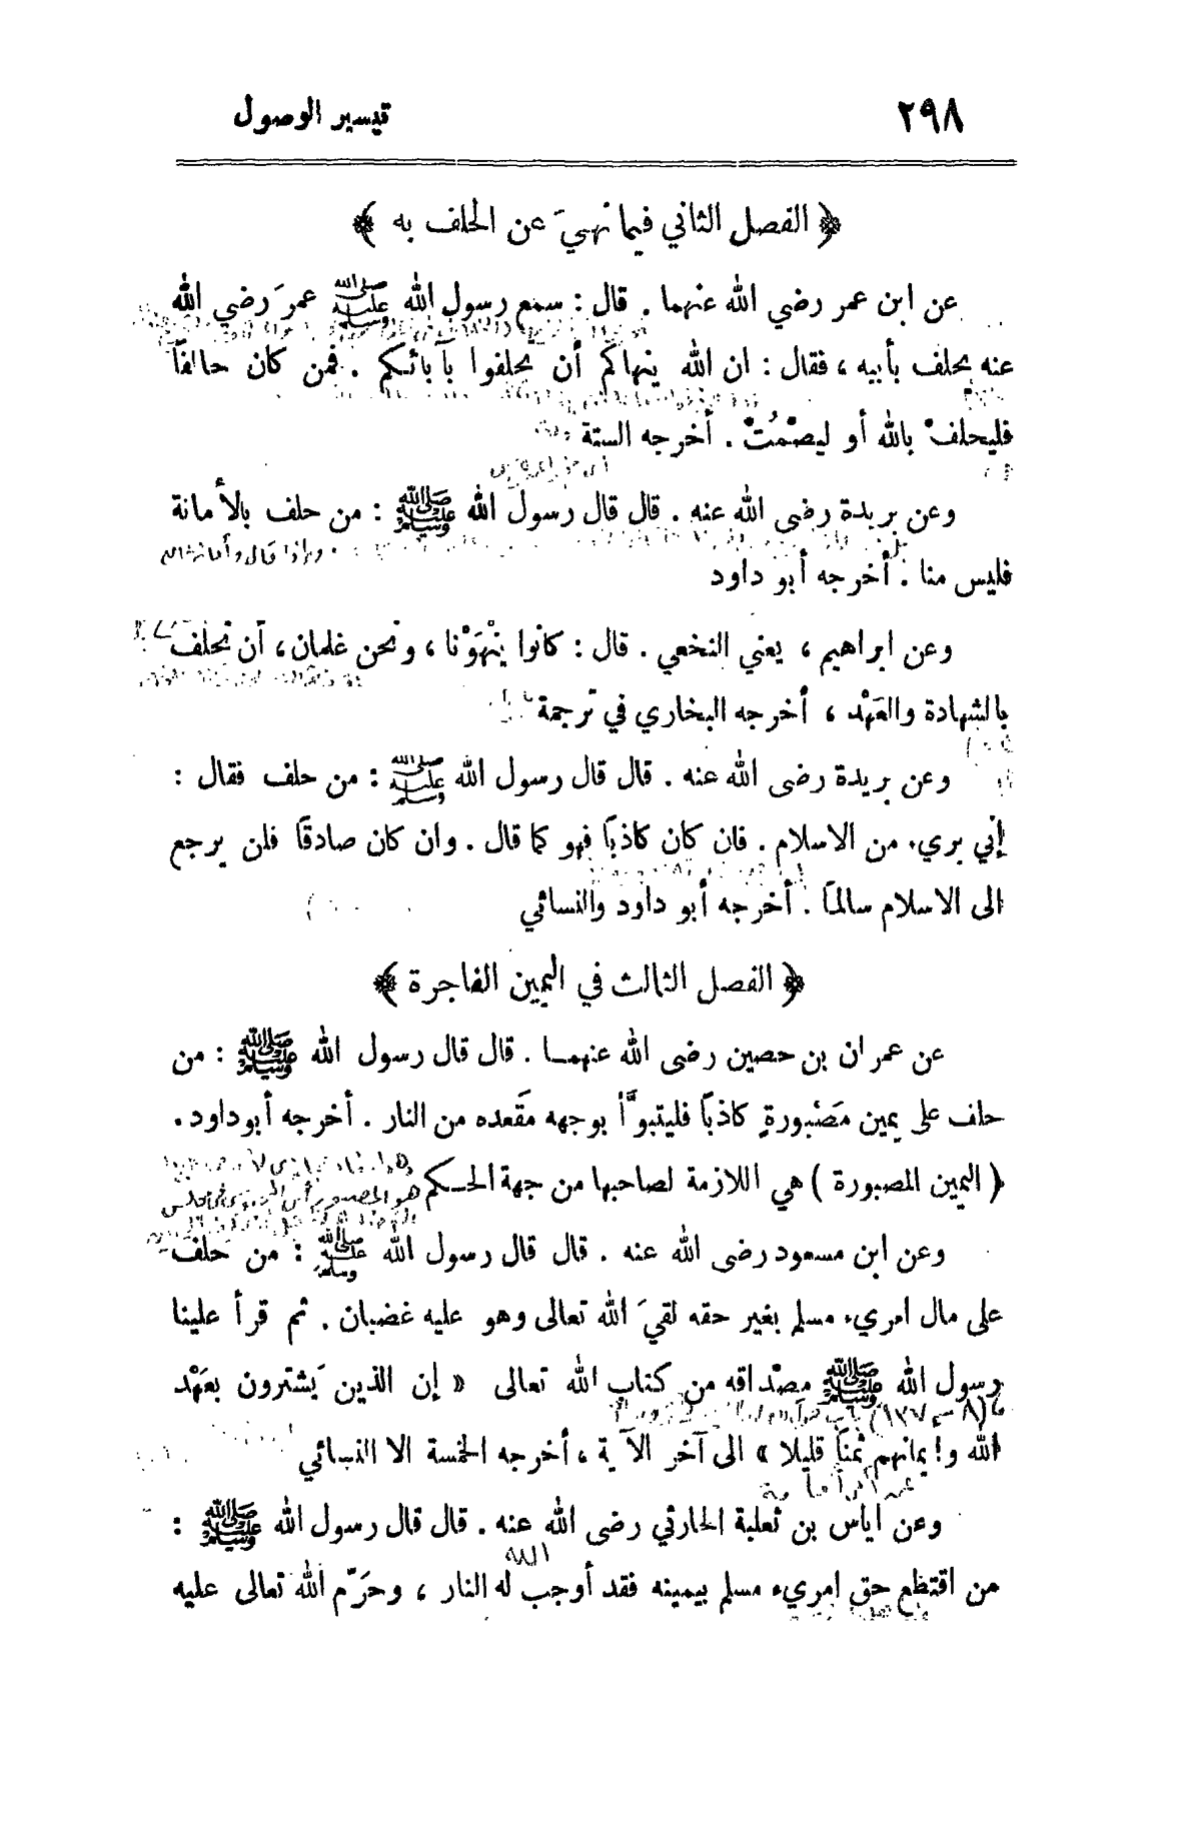 ٢٩٨
تيسير الوصول
﴿ الفصل الثاني فيما نهيَ عن الحلف به ﴾
عن ابن عمر رضي الله عنهما . قال : سمع رسول الله ﷺ عمرَ رضي الله
عنه يحلف بأبيه ، فقال : ان الله ينهاكم أن تحلفوا بآبائكم . فمن كان حالفاً
فليحلفْ بالله أو ليصْمُتْ . أخرجه الستة
وعن بريدة رضى الله عنه . قال قال رسول الله ﷺ : من حلف بالأمانة
فليس منا . أخرجه أبو داود
وعن ابراهيم ، يعني النخعي . قال : كانوا ينْهَوْنا ، ونحن غلمان ، أن نحلف
بالشهادة والعَهْد ، أخرجه البخاري في ترجمة
وعن بريدة رضى الله عنه . قال قال رسول الله ﷺ : من حلف فقال :
إني بريء من الاسلام . فان كان كاذبًا فهو كما قال . وان كان صادقًا فلن يرجع
الى الاسلام سالمًا . أخرجه أبو داود والنسائي
﴿ الفصل الثالث في اليمين الفاجرة ﴾
عن عمران بن حصين رضى الله عنهما . قال قال رسول الله ﷺ : من
حلف على يمين مَصْبورةٍ كاذبًا فليتبوَّأ بوجهه مَقعده من النار . أخرجه أبو داود .
( اليمين المصبورة ) هي اللازمة لصاحبها من جهة الحكم
وعن ابن مسعود رضى الله عنه . قال قال رسول الله ﷺ : من حلف
على مال امريء مسلم بغير حقه لقيَ الله تعالى وهو عليه غضبان . ثم قرأ علينا
رسول الله ﷺ مِصْداقه من كتاب الله تعالى « إن الذين يَشترون بعَهْد
الله وإيمانهم ثمنًا قليلا » الى آخر الآية ، أخرجه الخمسة الا النسائي
وعن اياس بن ثعلبة الحارثي رضى الله عنه . قال قال رسول الله ﷺ :
الله
من اقتطع حق امريء مسلم بيمينه فقد أوجب له النار ، وحَرّم الله تعالى عليه